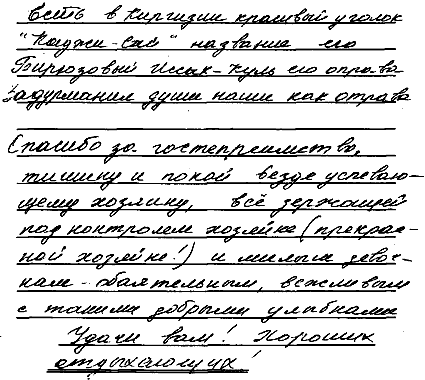 Есть в Киргизии красивый уголок
"Каджи-Сай" название его
Бирюзовый Иссык-Куль его оправа
Задурманил души наши как отрава
Спасибо за гостеприимство,
тишину и покой везде успеваю-
щему хозяину, всё держащей
под контролем хозяйке (прекрас-
ной хозяйке!) и милым девоч-
кам - обаятельным, вежливым
с такими добрыми улыбками
Удачи вам! Хороших
отдыхающих!